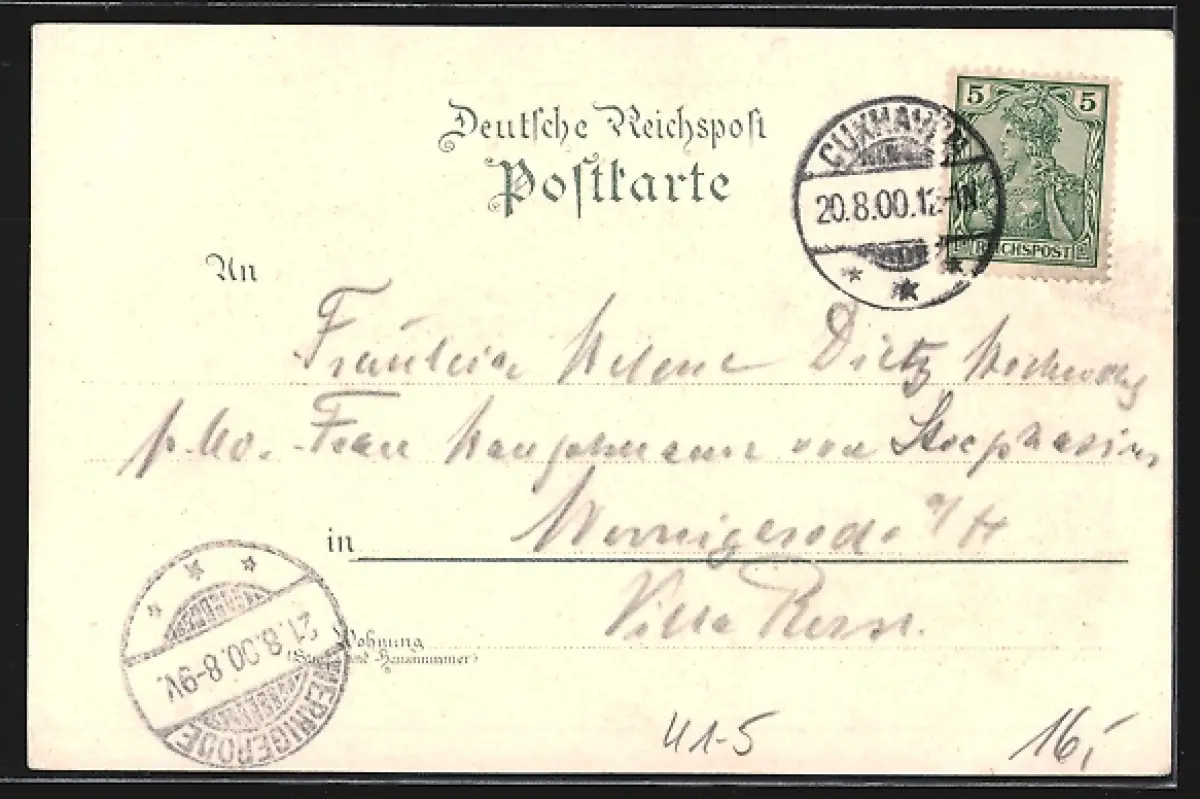 Deutsche Reichspost
Postkarte
CUXHAVEN
20.8.00.12-1N.
5 5
REICHSPOST
An
Fräulein Helene Dietz
p. Adr. Frau Hauptmann von
in Wernigerode a/H
Villa
Wohnung
(Strasse und Hausnummer)
21.8.00.8-9V.
WERNIGERODE
41-5
16,-